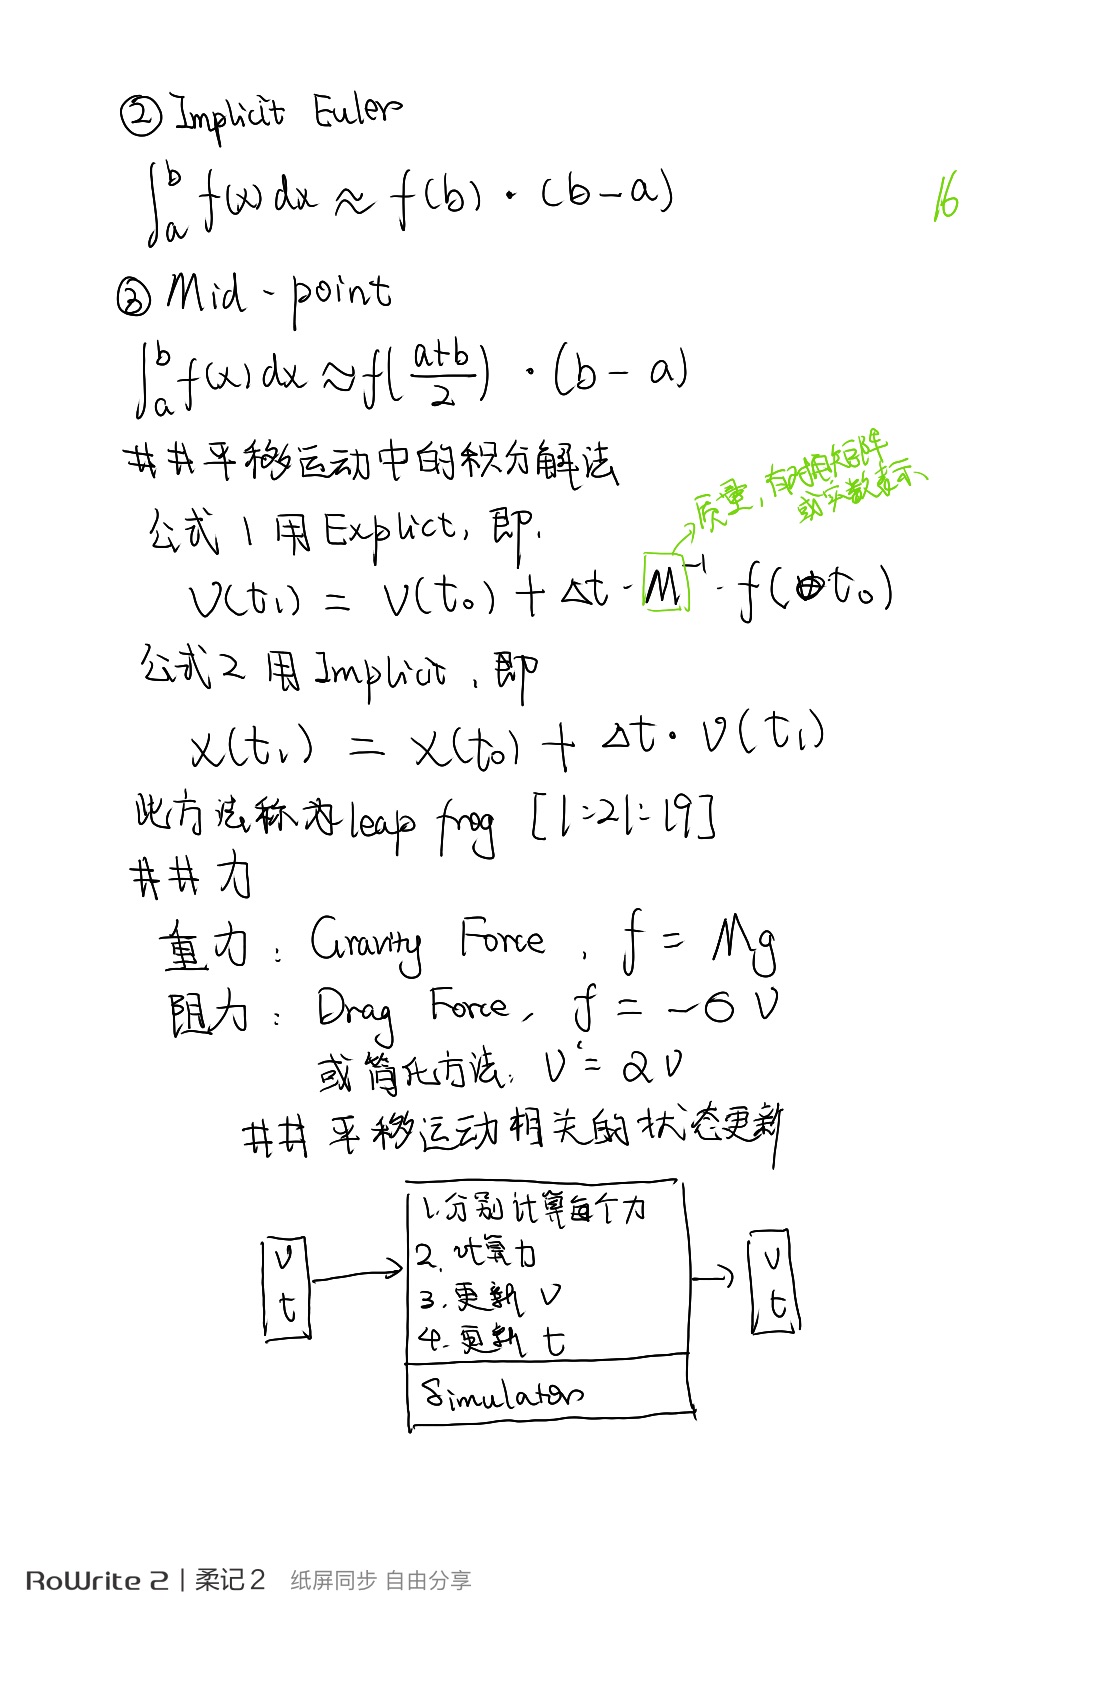 ② Implicit Euler
∫_a^b f(x) dx ≈ f(b) · (b-a)
16
③ Mid-point
∫_a^b f(x) dx ≈ f((a+b)/2) · (b-a)
## 平移运动中的积分解法
质量,有对角矩阵
或实数表示
公式1用Explict,即.
v(t₁) = v(t₀) + Δt · M⁻¹ · f(t₀)
公式2用Implicit,即
x(t₁) = x(t₀) + Δt · v(t₁)
此方法称为leap frog [1:21:19]
## 力
重力: Gravity Force, f = Mg
阻力: Drag Force, f = -6 v
或简化方法: v' = 2v
## 平移运动相关的状态更新
1.分别计算每个力
2.计算力
3.更新 v
4.更新 t
Simulator
v
t
v
t
RoWrite 2 | 柔记 2 纸屏同步 自由分享